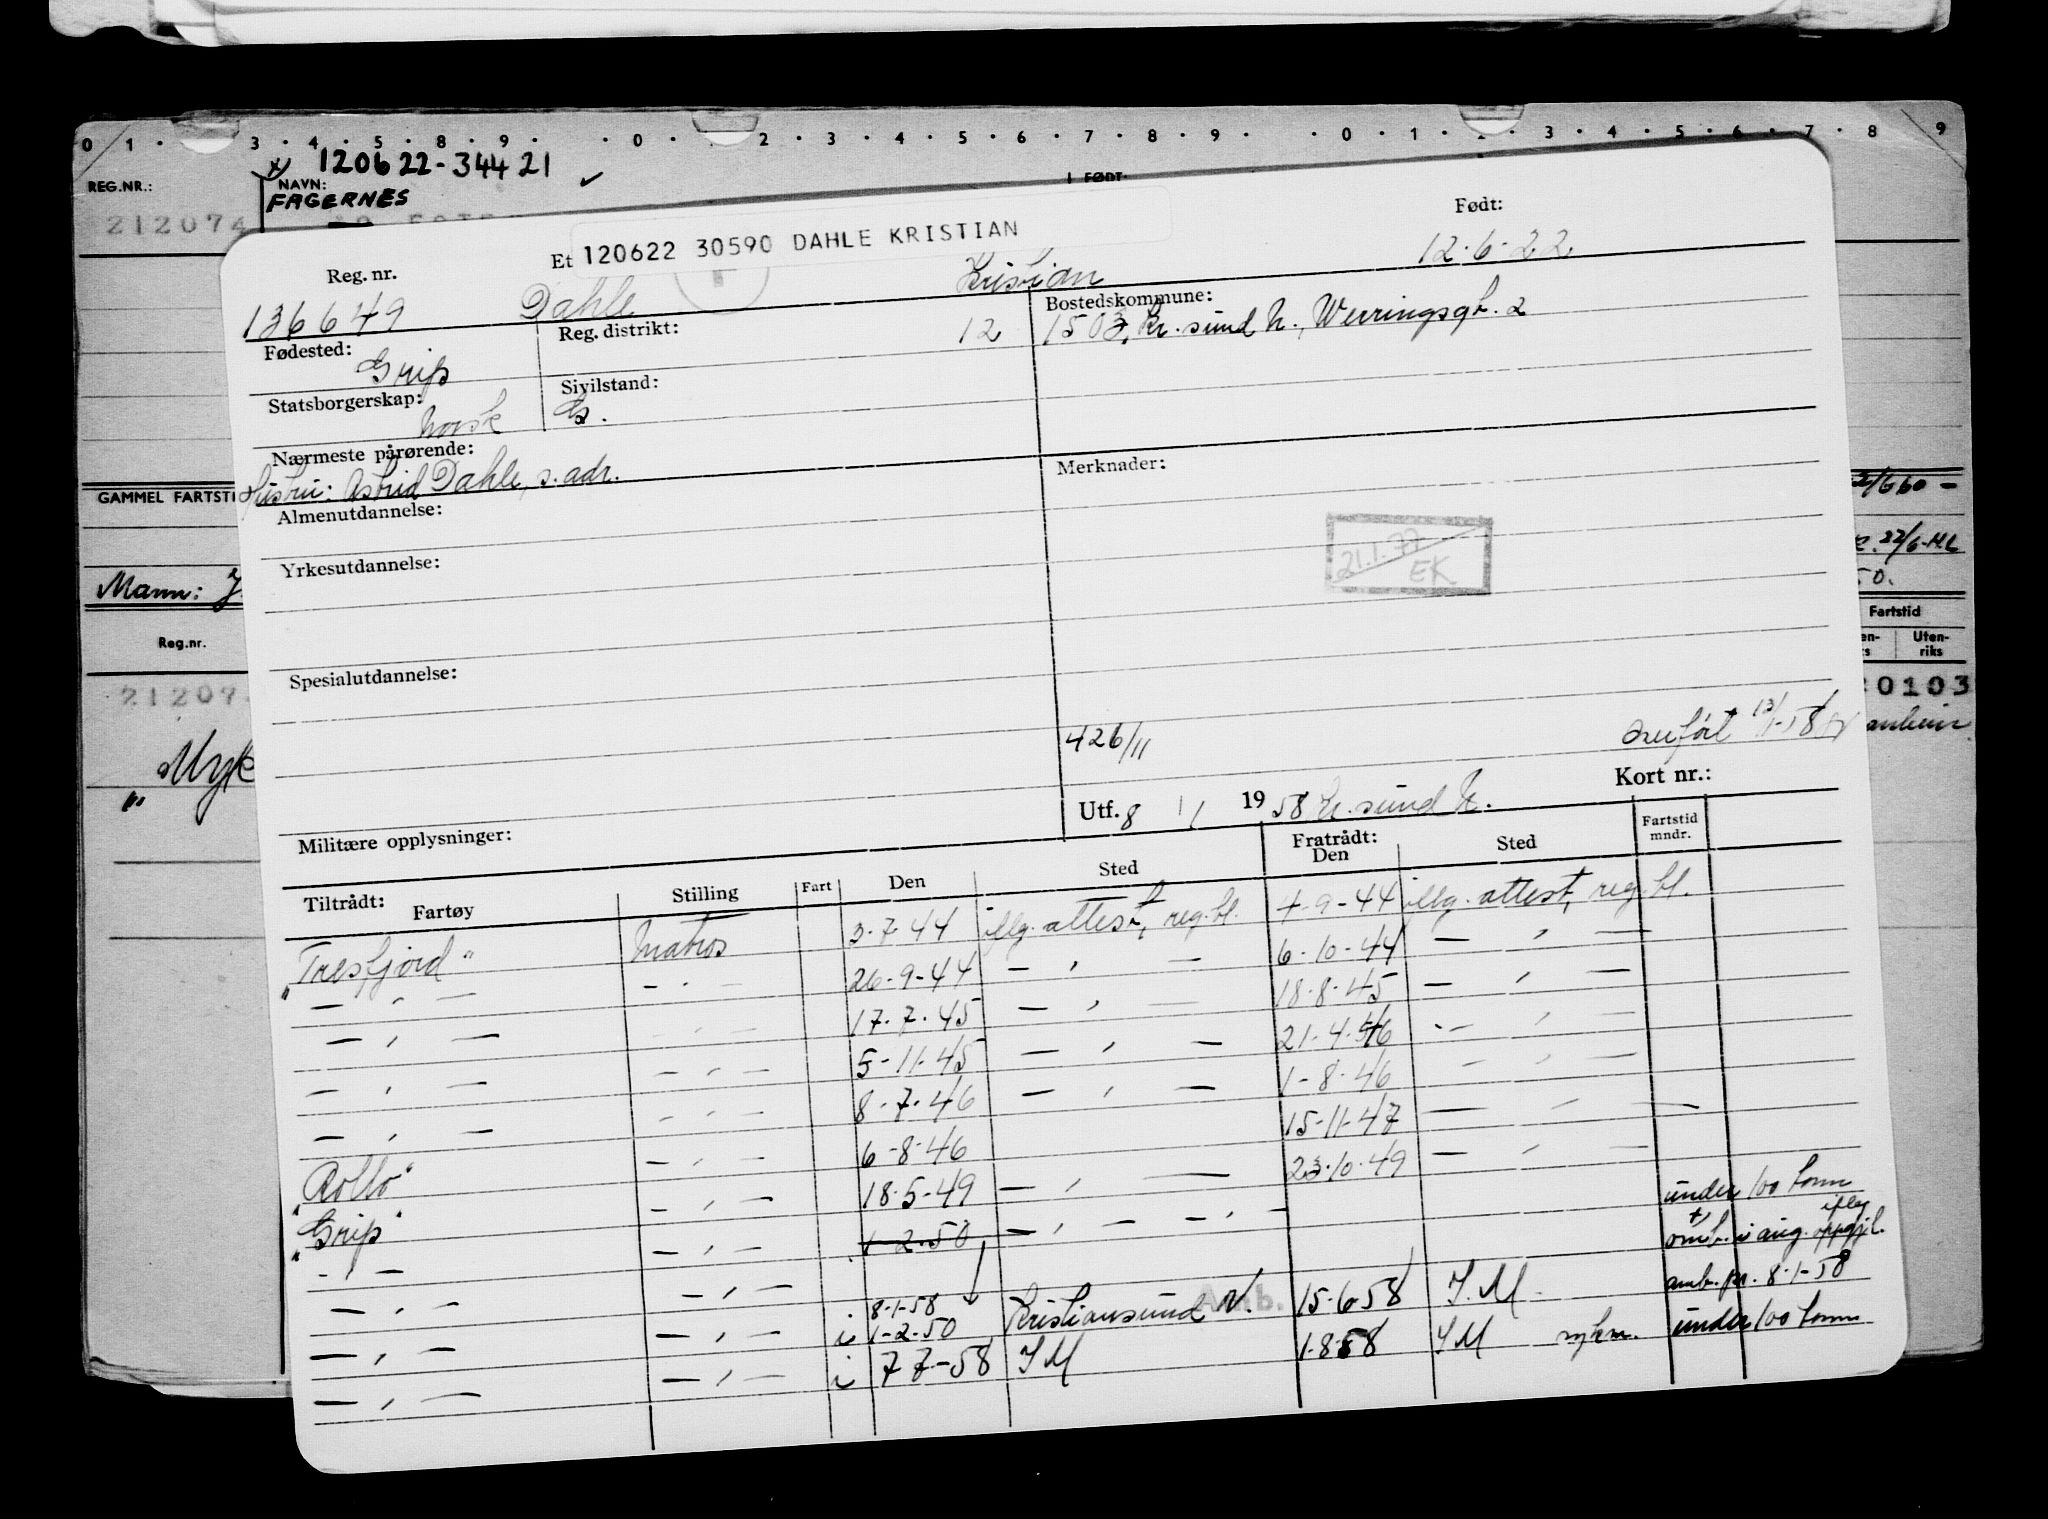 0 1 · 3 · 4 · 5 · 8 · 9 · · 0 · 2 · 3 · 4 · 5 · 6 · 7 · 8 · 9 · · 0 · 1 · 3 · 4 · 5 · 6 · 7 · 8 9
120622-34421 ✓
REG.NR.: NAVN: FØDT:
FAGERNES
212074
120622 30590 DAHLE KRISTIAN
Reg. nr. Et Født:
136649 Dahle Kristian 12·6·22
Fødested: Reg. distrikt: Bostedskommune:
Grip 12 1503, Kr.sund N., Werringsgt. 2
Statsborgerskap: Sivilstand:
norsk G.
Nærmeste pårørende: Merknader:
Hustru: Astrid Dahle, s. adr.
GAMMEL FARTSTI
Almenutdannelse:
21.1.77
EK
Yrkesutdannelse:
Mann:
Reg.nr. Fartstid
Uten-
riks
Spesialutdannelse:
21207 20103
426/11 overført 13/1-58
Myk
Utf. 8 / 1 1958 Kr.sund N. Kort nr.:
Militære opplysninger:
Tiltrådt: Fratrådt: Fartstid
mndr.
Fartøy Stilling Fart Den Sted Den Sted
"Tresfjord" Matros 3·7·44 iflg. attest, reg.bl. 4-9-44 iflg. attest, reg.bl.
— " — — " — 26-9-44 — " — 6-10-44 — " —
— " — — " — 17·7·45 — " — 18·8·45 — " —
— " — — " — 5-11-45 — " — 21-4-46 — " —
— " — — " — 8-7-46 — " — 1-8-46 — " —
"Rollo" — " — 6-8-46 15-11-47 — " —
"Grip" — " — 18·5-49 — " — 23·10·49 — " — under 100 tonn
— " — — " — 1-2-50 — " — — " — omb. i aug. iflg. oppgj.
— " — — " — 8-1-58 Kristiansund N. Amb. 15-6-58 I.M. amb. pr. 8-1-58
— " — — " — i 1-2-50
— " — — " — i 7 7-58 I M 1·8·58 I M under 100 tonn